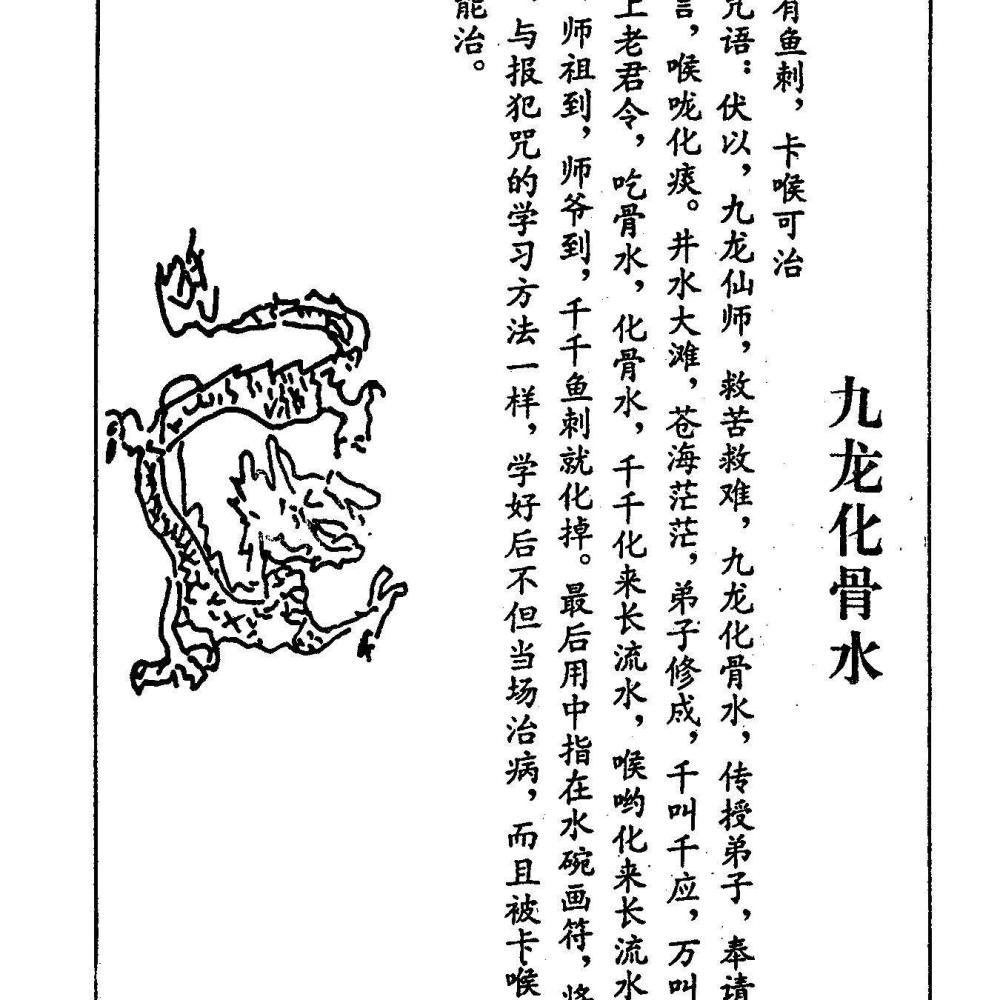 九龙化骨水
有鱼刺，卡喉可治
咒语：伏以，九龙仙师，救苦救难，九龙化骨水，传授弟子，奉请
言，喉咙化痰。井水大滩，苍海茫茫，弟子修成，千叫千应，万叫
上老君令，吃骨水，化骨水，千千化来长流水，喉哟化来长流水
，师祖到，师爷到，千千鱼刺就化掉。最后用中指在水碗画符，将
，与报犯咒的学习方法一样，学好后不但当场治病，而且被卡喉
能治。